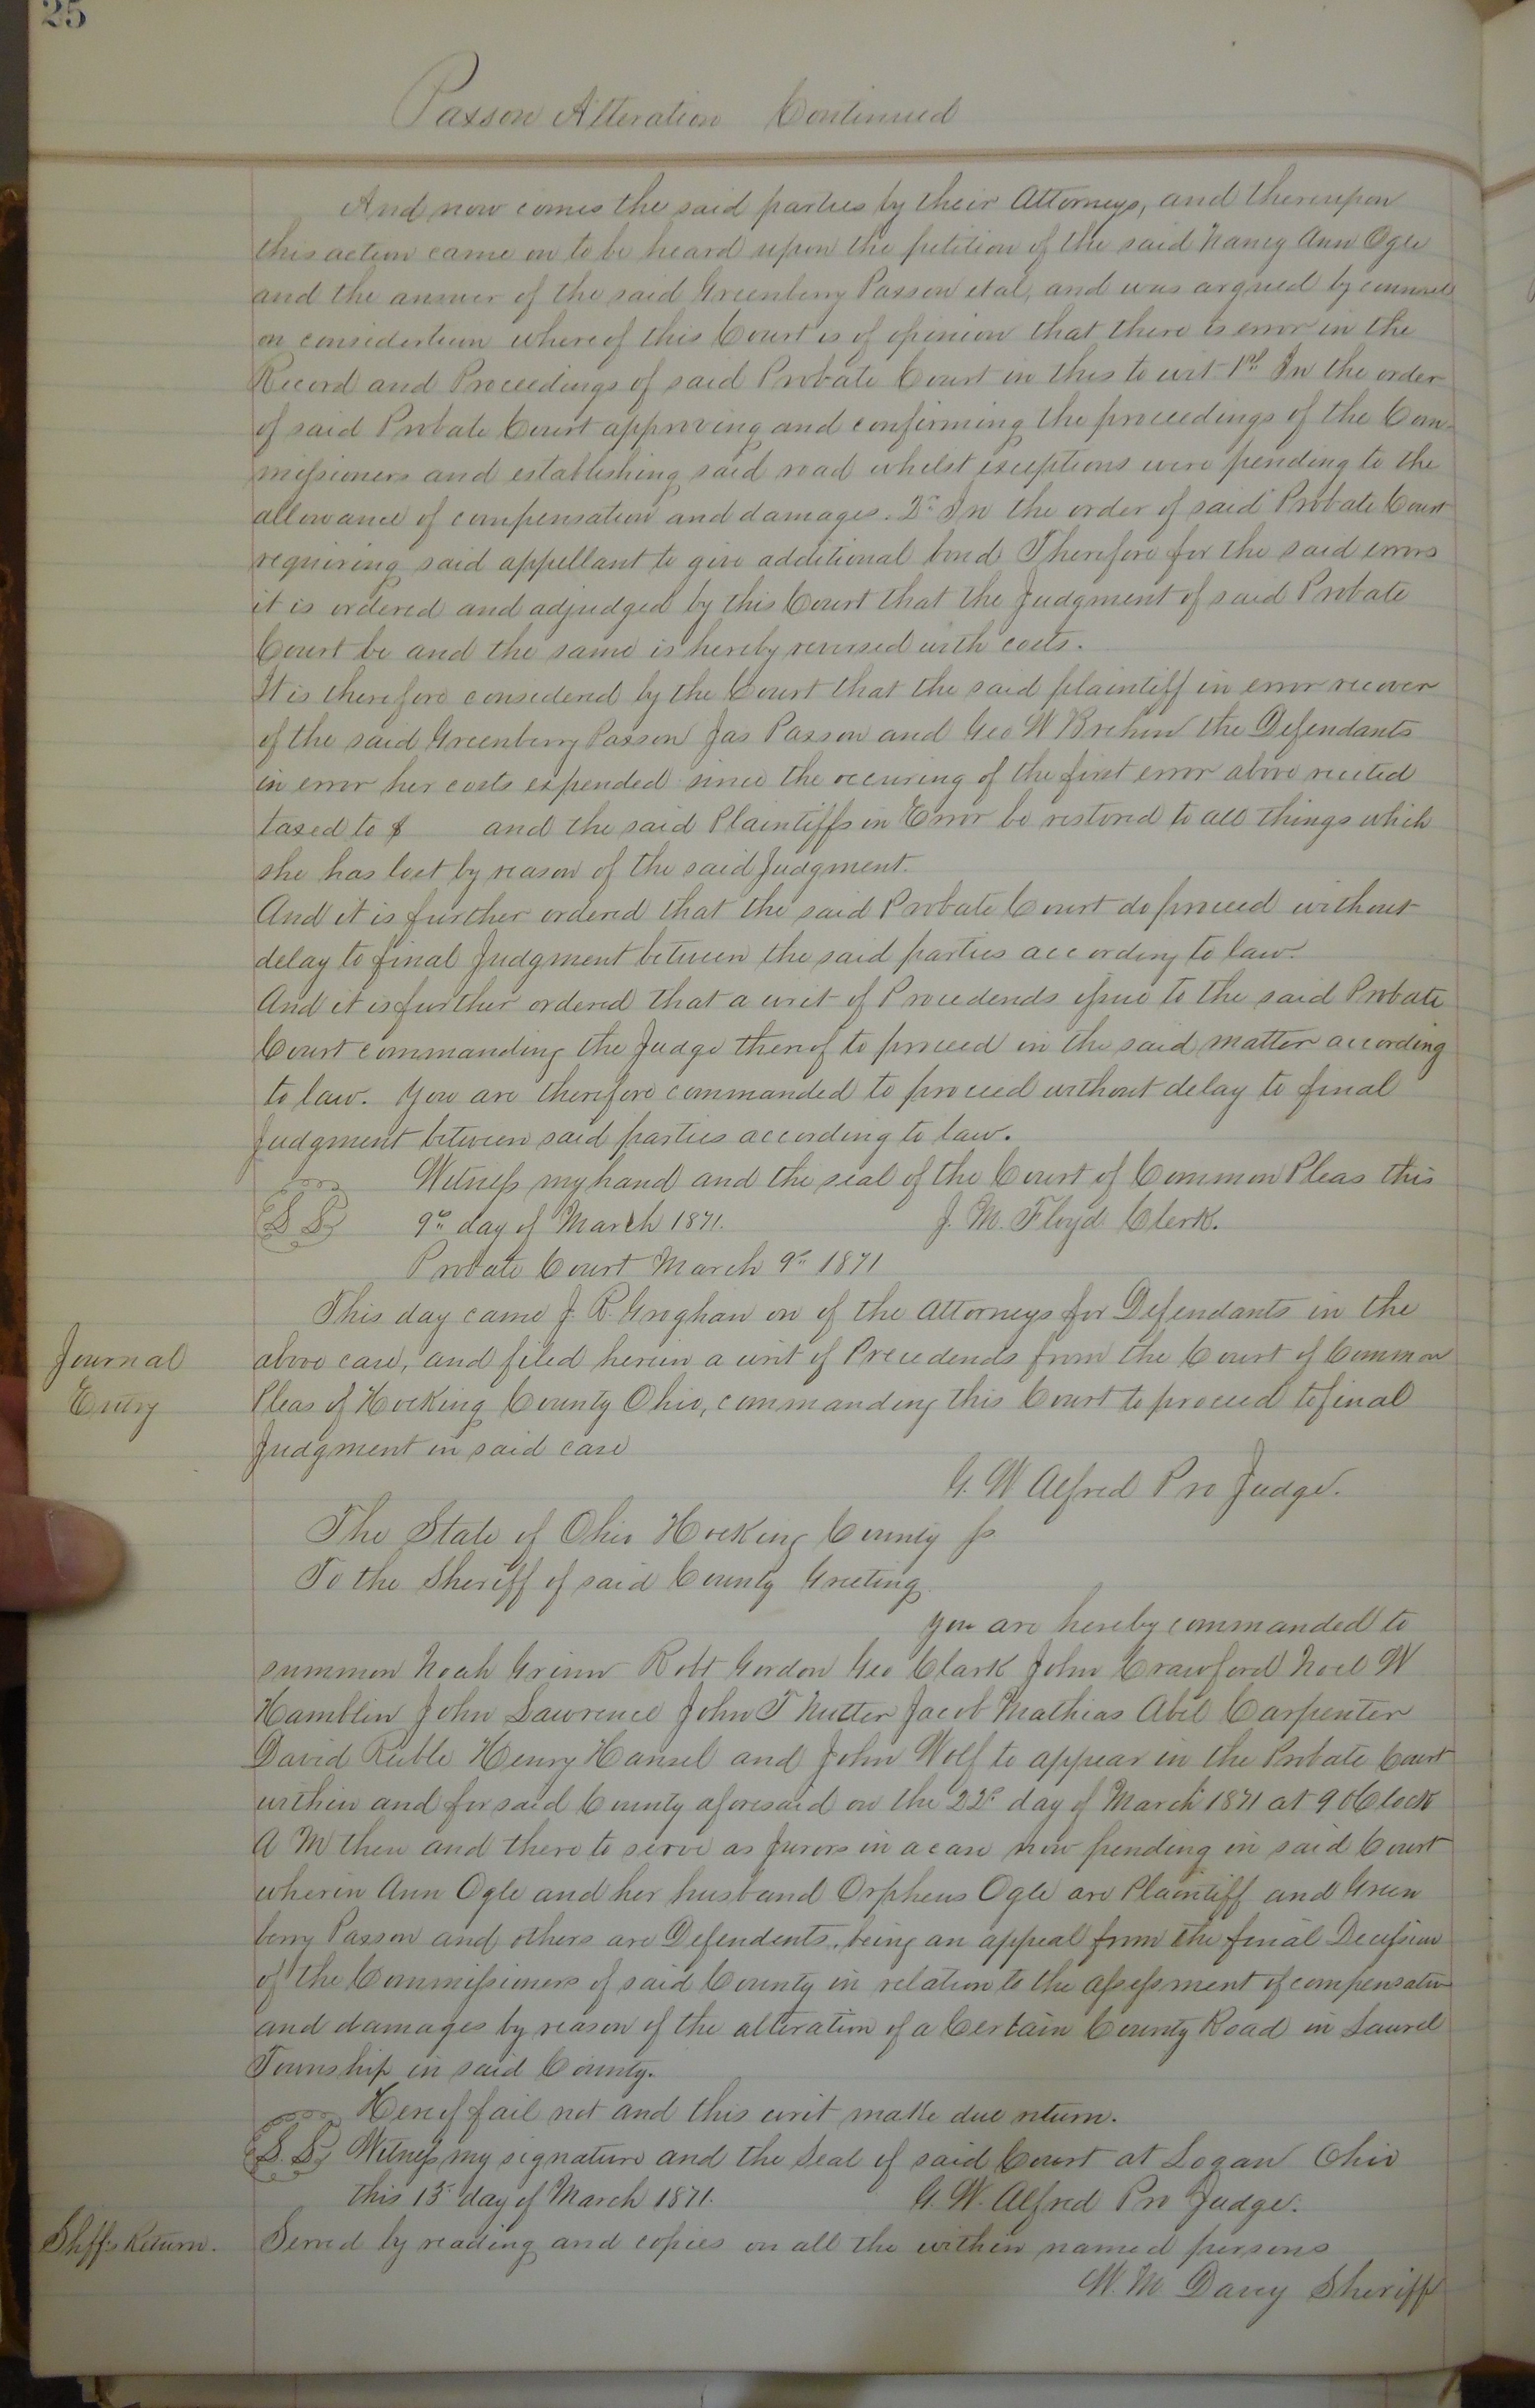 25
Paxson Alteration Continued
And now comes the said parties by their Attorneys, and thereupon
this action came on to be heard upon the petition of the said Nancy Ann Ogle
and the answer of the said Greenberry Paxson et al, and was argued by counsel
on considertion whereof this Court is of opinion that there is error in the
Record and Proceedings of said Probate Court in this to wit 1st In the order
of said Probate Court approving and confirming the proceedings of the Com-
missioners and establishing said road whilst exceptions were pending to the
allowance of compensation and damages. 2d In the order of said Probate Court
requiring said appellant to give additional bond Therefore for the said errors
it is ordered and adjudged by this Court that the Judgment of said Probate
Court be and the same is hereby reversed with costs.
It is therefore considered by the Court that the said plaintiff in error recover
of the said Greenberry Paxson Jas Paxson and Geo W Brehm the Defendants
in error her costs expended since the occuring of the first error above recited
taxed to $ and the said Plaintiffs in Error be restored to all things which
she has lost by reason of the said Judgment.
And it is further ordered that the said Probate Court do proceed without
delay to final Judgment between the said parties according to law.
And it is further ordered that a writ of Procedendo issue to the said Probate
Court commanding the Judge thereof to proceed in the said matter according
to law. You are therefore commanded to proceed without delay to final
Judgment between said parties according to law.
Witness my hand and the seal of the Court of Common Pleas this
L S 9th day of March 1871. J. M. Floyd Clerk.
Probate Court March 9th 1871
This day came J. R. Groghan on of the Attorneys for Defendants in the
Journal Entry
above case, and filed herein a writ of Precedendo from the Court of Common
Pleas of Hocking County Ohio, commanding this Court to proceed to final
Judgment in said case
G. W Alfred Pro Judge.
The State of Ohio Hocking County ss
To the Sheriff of said County Greeting
you are hereby commanded to
summon Noah Grinn Robt Gordon Geo Clark John Crawford Noel W
Hamblin John Lawrence John T Nutter Jacob Mathias Abel Carpenter
David Ruble Henry Hansel and John Wolf to appear in the Probate Court
within and for said County aforesaid on the 22d day of March 1871 at 9 oClock
A M then and there to serve as Jurors in a case now pending in said Court
wherin Ann Ogle and her husband Orpheus Ogle are Plaintiff and Green
berry Paxson and others are Defendents, being an appeal from the final Decission
of the Commissioners of said County in relation to the assessment of compensation
and damages by reason of the alteration of a Certain County Road in Laurel
Township in said County.
Hereof fail not and this writ make due return.
L. S. Witness my signature and the Seal of said Court at Logan Ohio
this 13th day of March 1871. G. W. Alfred Pro Judge.
Shff's Return. Served by reading and copies on all the within named persons
W. M Davey Sheriff